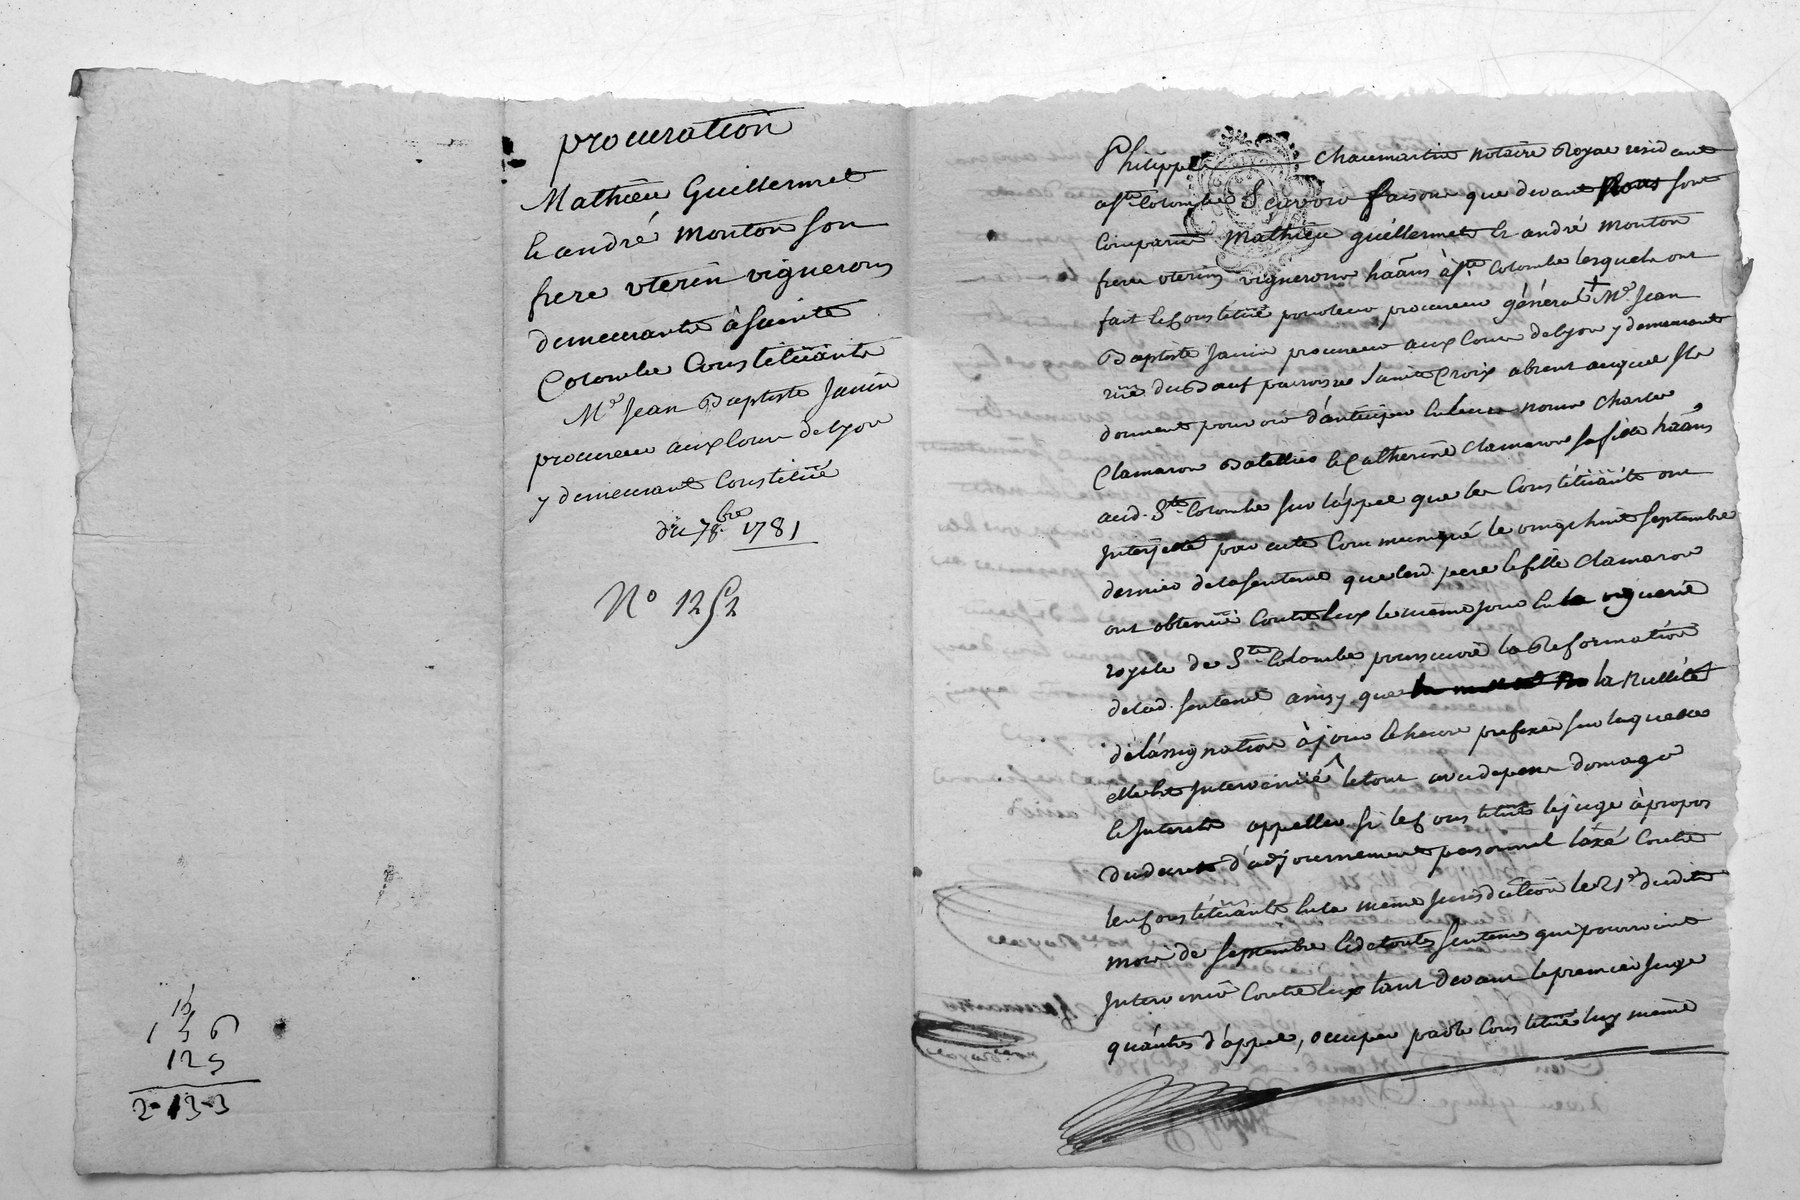 procuration
Mathieu Guillermet
& andré mouton son
frere uterin vignerons
demeurants à sainte
Colombe Constituants
Me Jean Baptiste Janin
procureur aux Cours de lyon
y demeurant Constitué
du 7 8.bre 1781
No 1252
15
1 5 6
12 5
2-13-3
Philippe Chaumartin notaire Royal residant
a ste Colombe Scavoir faisons que devant Nous sont
Comparus Mathieu guillermet & andré mouton
freres uterins vignerons hāans à ste Colombe lesquels ont
fait & Constitué pour leur procureur général + Me. Jean
Baptiste Janin procureur aux Cours de lyon y demeurant
rüe du Bœuf parroisse Sainte Croix absent auquel Ils
donnent pouvoir d'anticiper en leurs noms Charles
Clamaron Batellier & Catherine Clamaron sa fille hāans
aud. Ste Colombe sur l'appel que les Constituants ont
Interjetté par acte Communiqué le vingt huit septembre
dernier de la sentence que lesd. pere & fille Clamaron
ont obtenüe Contre Eux le même jour En la viguerie
royale de Ste Colombe poursuivre la Reformation
de lad. sentence ainsy que la Nullité
de l'assignation à jour & heure prefixée sur laquelle
elle Est Intervenüe ^ le tout avec depens domage
& Interets appeller si le Constitué le juge à propos
du decret d'adjournement personnel laxé Contre
les Constituants En la même Jurisdiction le 21e dudit
mois de septembre & de toutes sentences qui pourroient
Intervenir Contre Eux tant devant le premier Juge
qu'en Cas d'appel, occuper par le Constitué luy même